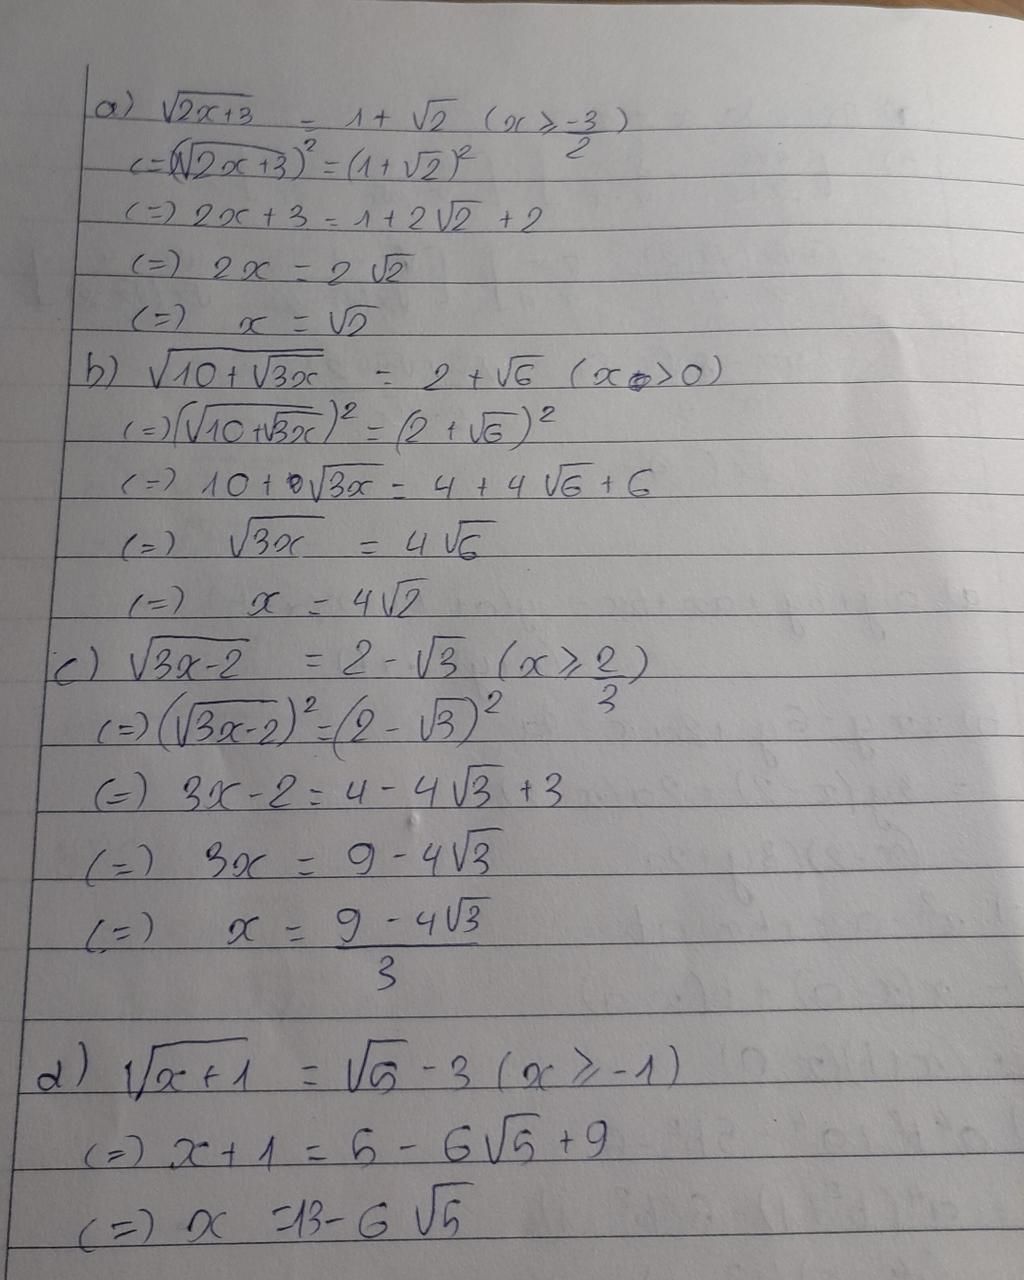 a) √(2x+3) = 1 + √2 (x ≥ -3/2)
(=) (√(2x+3))² = (1+√2)²
(=) 2x + 3 = 1 + 2√2 + 2
(=) 2x = 2√2
(=) x = √2
b) √(10 + √(3x)) = 2 + √6 (x > 0)
(=) (√(10+√(3x)))² = (2 + √6)²
(=) 10 + √(3x) = 4 + 4√6 + 6
(=) √(3x) = 4√6
(=) x = 4√2
c) √(3x-2) = 2 - √3 (x ≥ 2/3)
(=) (√(3x-2))² = (2 - √3)²
(=) 3x - 2 = 4 - 4√3 + 3
(=) 3x = 9 - 4√3
(=) x = (9 - 4√3)/3
d) √(x+1) = √5 - 3 (x ≥ -1)
(=) x + 1 = 5 - 6√5 + 9
(=) x = 13 - 6√5